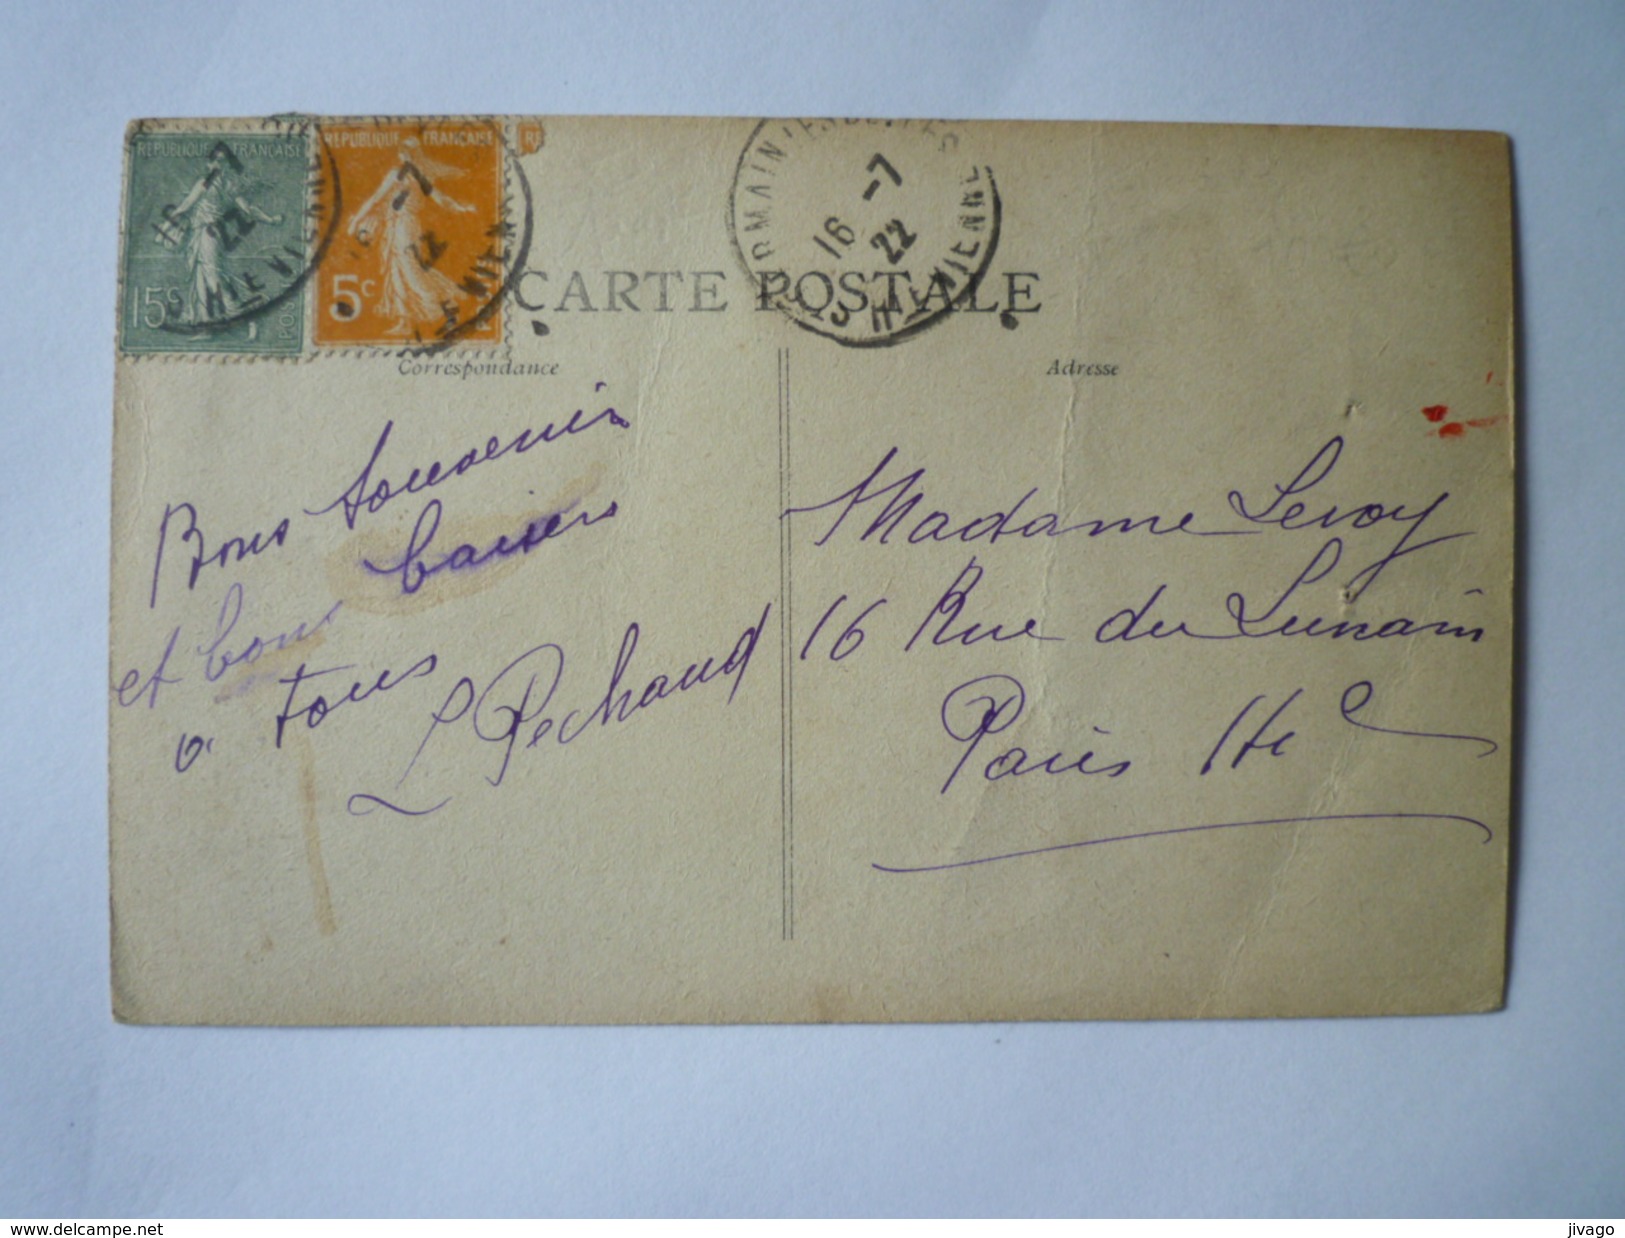 REPUBLIQUE FRANÇAISE
15c
REPUBLIQUE FRANÇAISE
5c
16 -7
22
-7
22
16 -7
22
Hte VIENNE
CARTE POSTALE
Correspondance
Adresse
Bons souvenir
et bons baisers
a tous
L Pechaud
Madame Leroy
16 Rue du Lunain
Paris 14e
www.delcampe.net
jivago